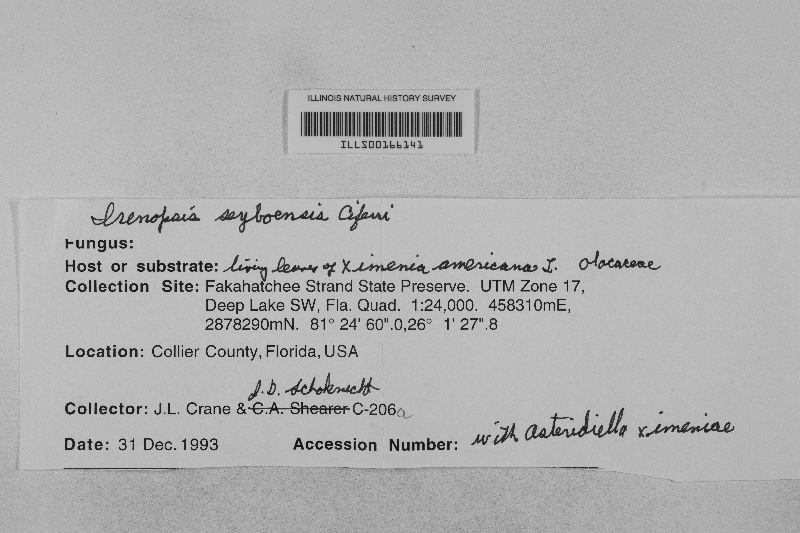 ILLINOIS NATURAL HISTORY SURVEY
ILLS00166141
Irenopsis seyboensis Ciferri
Fungus:
Host or substrate: living leaves of Ximenia americana L. Olacaceae
Collection Site: Fakahatchee Strand State Preserve. UTM Zone 17,
Deep Lake SW, Fla. Quad. 1:24,000. 458310mE,
2878290mN. 81° 24' 60".0,26° 1' 27".8
Location: Collier County, Florida, USA
J.D. Schoknecht
Collector: J.L. Crane & C.A. Shearer C-206a
Date: 31 Dec. 1993 Accession Number: with Asteridiella ximeniae